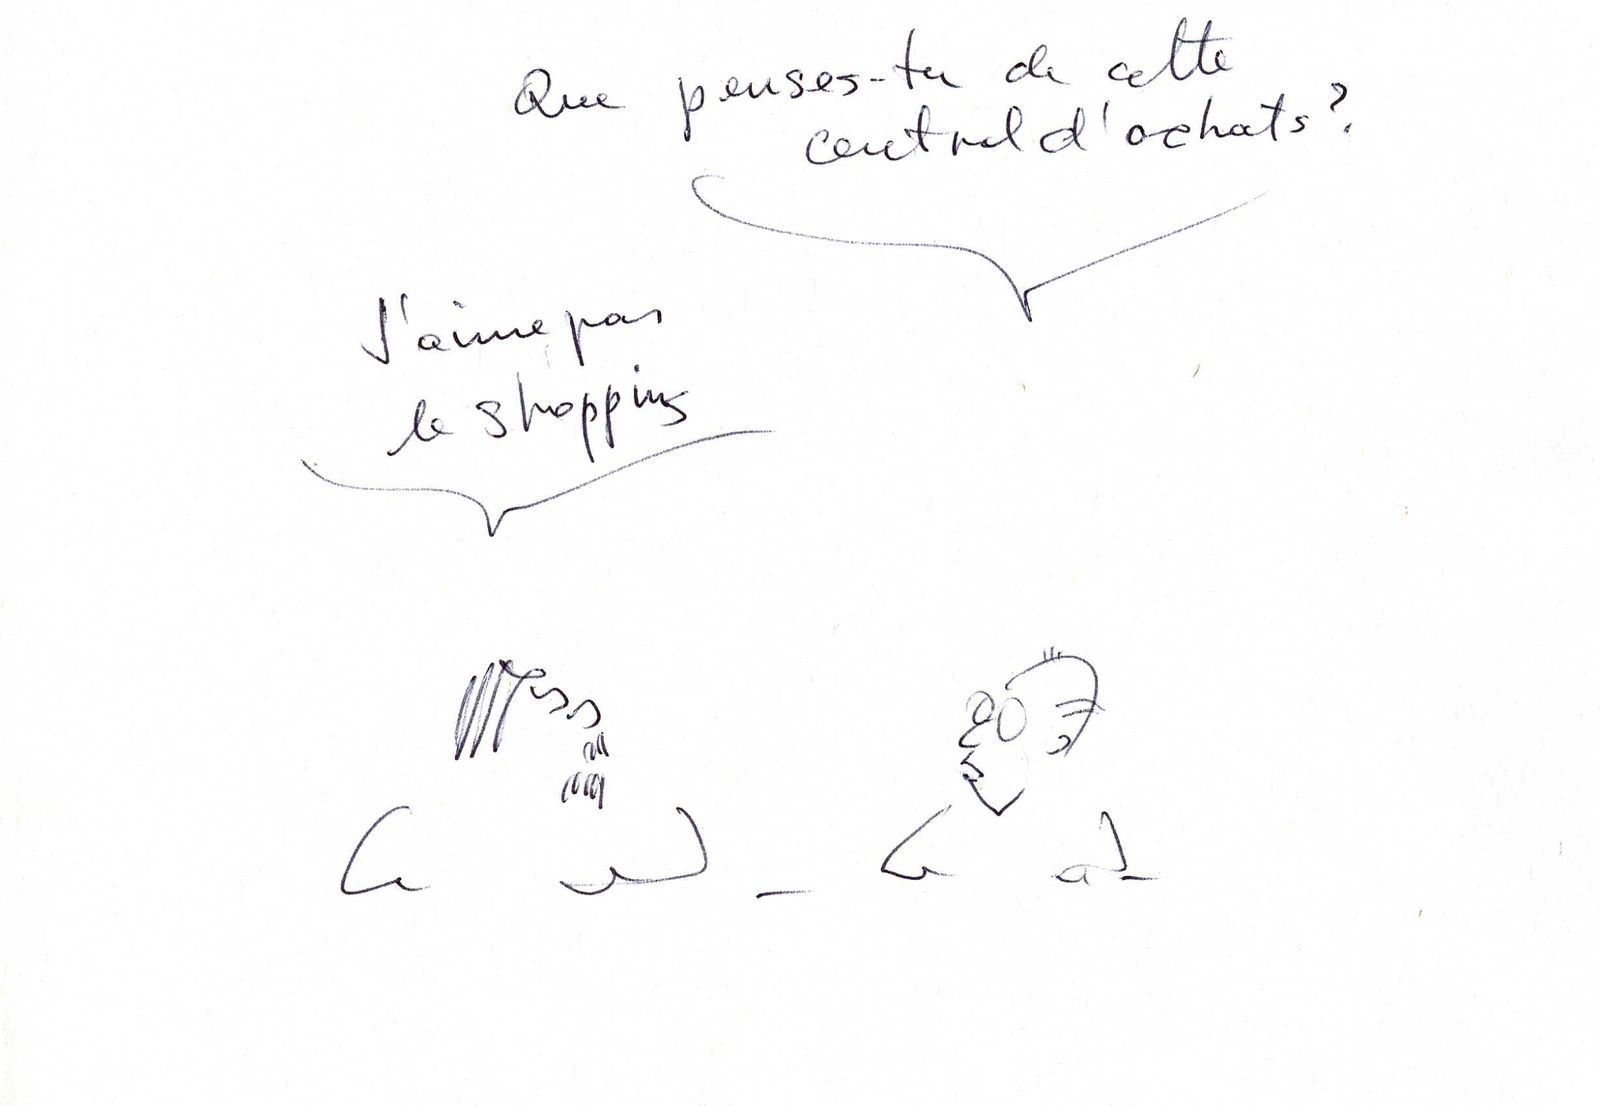 Que penses-tu de cette
central d'achats ?
J'aime pas
le shopping